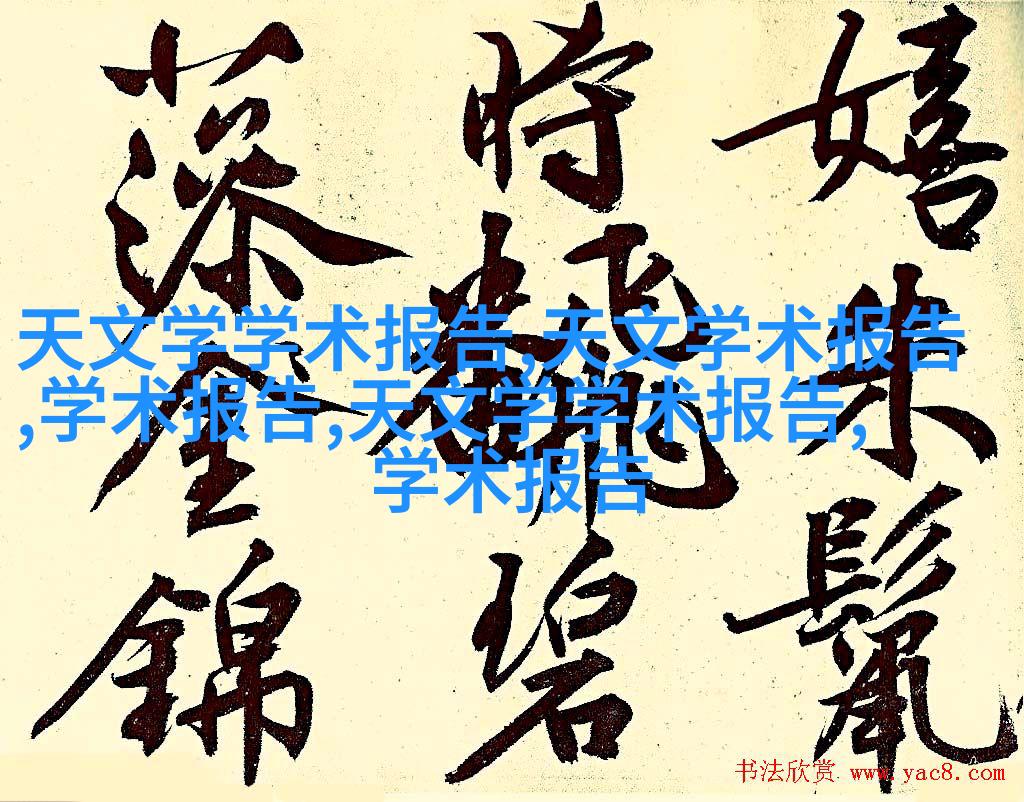 嬉朱鬣
時飜碧
藻錦
天文学学术报告,天文学术报告
,学术报告,天文学学术报告,
学术报告
书法欣赏 www.yac8.com